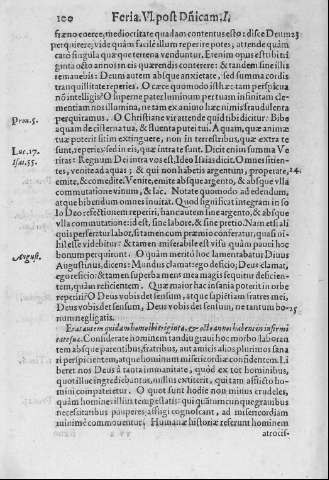 100 Feria. VI. post Dñicam. I.
fræno coerce, mediocritate quadam contentus esto: disce Deum 23
perquirere; vide quàm facilè illum reperire potes; attende quàm
carò singula quæq; terrena venduntur. Etenim opus est ubi tri
ginta octo annos in eis quærendis conterere: & tandem sine illis
remanebis: Deum autem absque anxietate, sed summa cordis
tranquillitate reperies. O cæce quomodo isthæc tam perspicua
nó intelligis? O superne pater luminum per tuam infinitam cle-
mentiam nos illumina, ne tam ex animo hæc nimis fraudulenta
Prov. 5. perquiramus. O Christiane vir attende quid tibi dicitur: Bibe
aquam de cisterna tua, & fluenta putei tui. Aquam, quæ animæ
tuæ poterit sitim extinguere, non in terrestribus, quæ extra te
Luc. 17. sunt, reperies; sed in eis, quæ intra te sunt. Dicit enim summa Ve
Isai. 55. ritas: Regnum Dei intra vos est. Ideo Isaias dicit. Omnes sitien-
tes, venite ad aquas; & qui non habetis argentum, properate, 24.
emite, & comedite. Venite, emite absque argento, & absque ulla
commutatione vinum, & lac. Notate quomodo ad edendum,
atque bibendum omnes invitat. Quod significat integram in so
lo Deo refectionem reperiri, hanc autem sine argento, & absque
ulla commutatione: id est, sine labore, & sine pretio. Nam etsi ali
quis perfertur labor, si tamen cum præmio conferatur, quasi ni-
hil esse videbitur: & tamen miserabile est visu quàm pauci hoc
August. bonum perquirunt. O quàm meritò hoc lamentabatur Divus
Augustinus, dicens: Mundus clamat: ego deficio; Deus clamat,
ego reficio: & tamen superba mens mea magis sequitur deficien-
tem, quàm reficientem. Quæ maior hac insania poterit in orbe
reperiri? O Deus vobis det sensum, atque sapiétiam fratres mei,
Deus vobis det sensum, Deus vobis det sensum, ne tantum bo- 25
num negligatis.
Erat autem quidam homo ibi triginta, & octo annos habens in infirmi
tate sua. Considerate hominem tandiu gravi hoc morbo laboran
tem absque parentibus, fratribus, aut amicis alios plurimos sana
ri perspicientem, atque hominem misericordiæ confidentem. Li
beret nos Deus à tanta immanitate, quòd ex tot hominibus,
quot illuc ingrediebantur, nullus extiterit, qui tam afflicto ho-
mini compateretur. O quot sunt hodie non minus crudeles,
quàm homines illius tempestatis: qui quátumcunque gravibus
necessitatibus pauperes affligi cognoscant, ad misericordiam
minimè commoventur; Humanæ historiæ referunt hominem
atrocis-